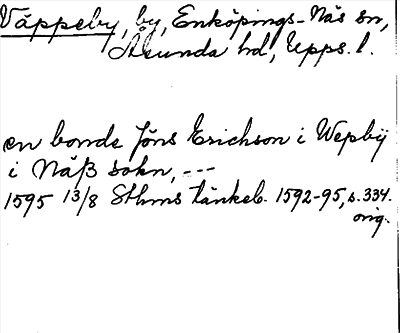 Väppeby, by, Enköpings-Näs sn,
Åsunda hd, Upps. l.
en bonde Jöns Erichson i Wepbÿ
i Näß sokn, ---
1595 13/8 Sthms tänkeb. 1592-95, s. 334.
orig.